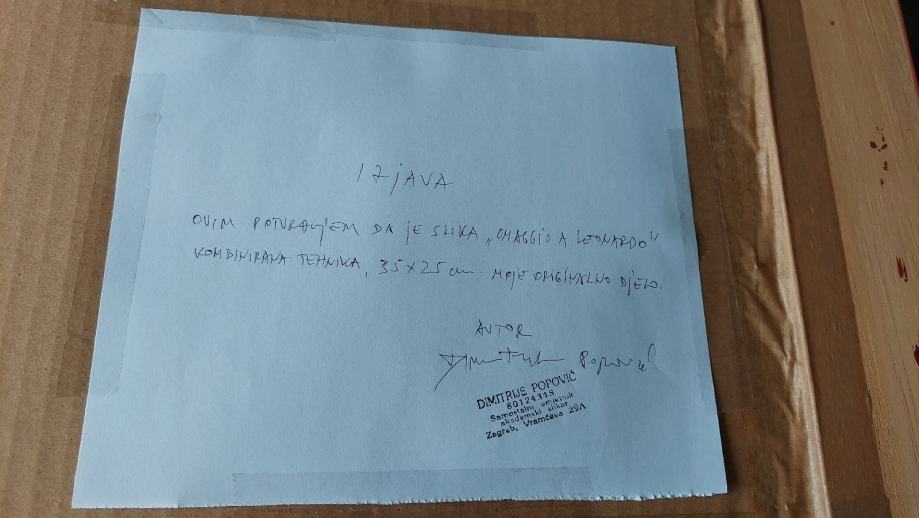 IZJAVA
OVIM POTVRĐUJEM DA JE SLIKA „OMAGGIO A LEONARDO"
KOMBINIRANA TEHNIKA, 35X25 cm. MOJE ORIGINALNO DJELO.
AUTOR
Dimitrije Popović
DIMITRIJE POPOVIĆ
80124318
Samostalni umjetnik
akademski slikar
Zagreb, Vramčeva 29A